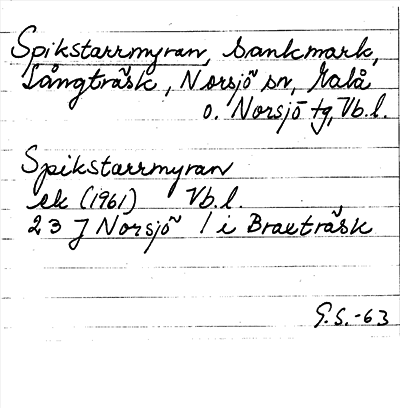 Spikstarrmyran, sankmark,
Långträsk, Norsjö sn, Malå
o. Norsjö tg, Vb.l.
Spikstarrmyran
ek (1961) Vb.l.
23 J Norsjö / i Braxträsk
G.S.-63